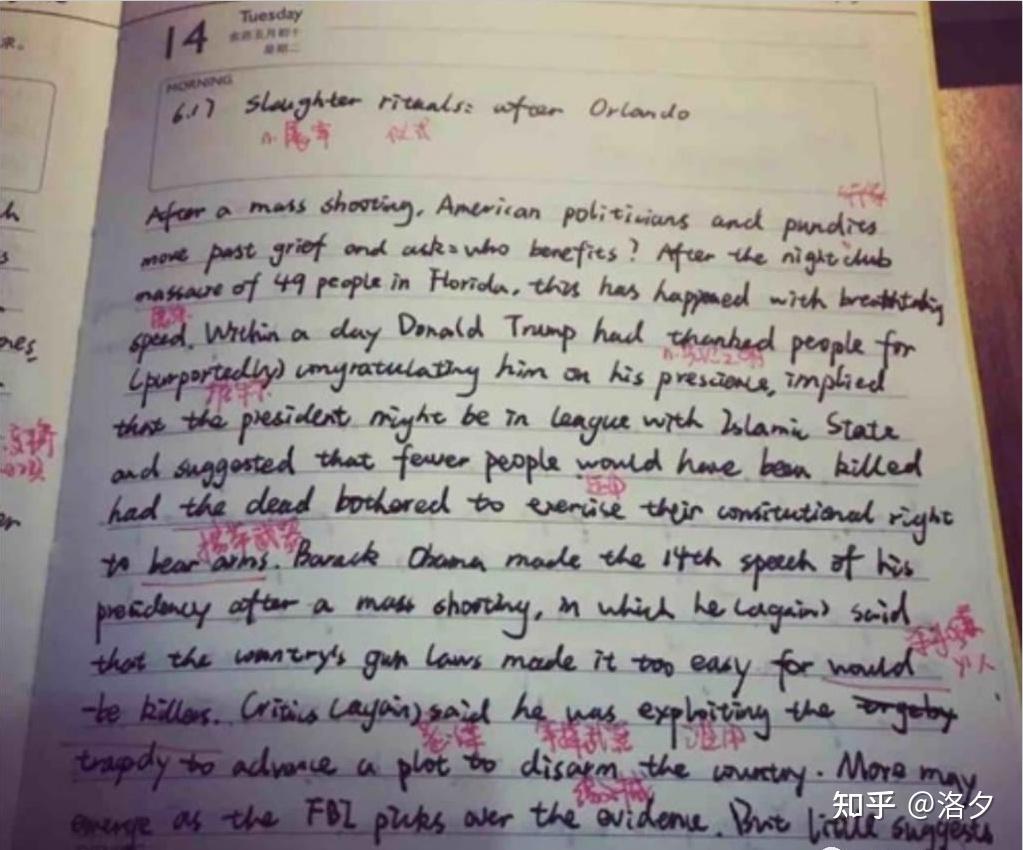 14 Tuesday
农历五月初十
星期二
MORNING
6.17 Slaughter rituals: after Orlando
n.屠宰 仪式
After a mass shooting, American politicians and pundits
move past grief and ask: who benefits? After the nightclub
massacre of 49 people in Florida, this has happened with breathtaking
speed. Within a day Donald Trump had thanked people for
(purportedly) congratulating him on his prescience, implied
that the president might be in league with Islamic State
and suggested that fewer people would have been killed
had the dead bothered to exercise their consitutional right
携带武器
to bear arms. Barack Obama made the 14th speech of his
presidency after a mass shooting, in which he (again) said
that the country's gun laws made it too easy for would
-be killers. Critics (again) said he was exploiting the
tragedy to advance a plot to disarm the country. More may
emerge as the FBI picks over the evidence. But little suggests
知乎 @洛夕